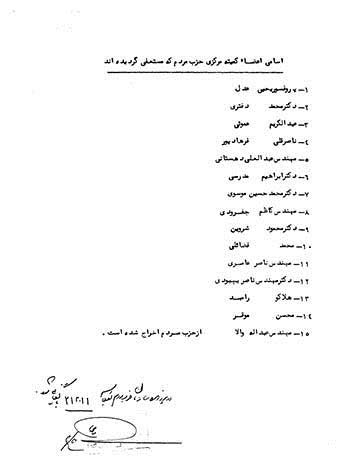 اسامی اعضاء کمیته مرکزی حزب مردم که مستعفی گردیده اند
۱- پروفسور یحیی عدل
۲- دکتر محمد دفتری
۳- عبدالکریم عموئی
۴- ناصرقلی فرهادپور
۵- مهندس عبدالعلی دهستانی
۶- دکتر ابراهیم مدرسی
۷- دکتر محمد حسین موسوی
۸- مهندس کاظم جفرودی
۹- دکتر محمود شروین
۱۰- محمد فضائلی
۱۱- مهندس ناصر عاصری
۱۲- دکتر مهندس ناصر بهبودی
۱۳- هلاکو رامبد
۱۴- محسن موقر
۱۵- مهندس عبداله والا ازحزب مردم اخراج شده است .
۲۱۲۰۱۱